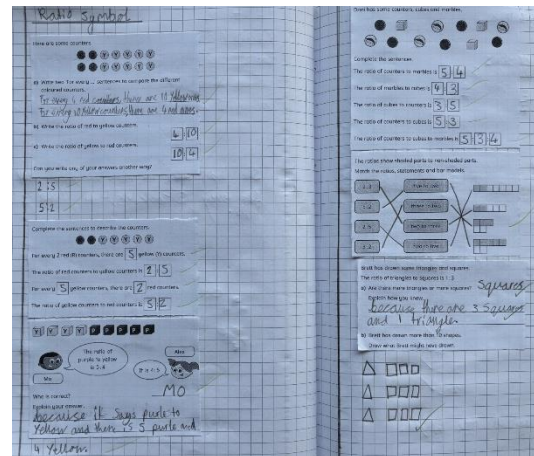 Ratio Symbol
Here are some counters.
R R Y Y Y Y Y
R R Y Y Y Y Y
a) Write two 'For every ...' sentences to compare the different
coloured counters.
For every 4 red counters, there are 10 Yellow
For every 10 counters, there are 4 red ones.
b) Write the ratio of red to yellow counters.
4 : 10
c) Write the ratio of yellow to red counters.
10 : 4
Can you write any of your answers another way?
2:5
5:2
Complete the sentences to describe the counters.
R R Y Y Y Y Y
For every 2 red (R) counters, there are 5 yellow (Y) counters.
The ratio of red counters to yellow counters is 2 : 5
For every 5 yellow counters, there are 2 red counters.
The ratio of yellow counters to red counters is 5 : 2
Y Y Y Y P P P P P
The ratio of
purple to yellow
is 5:4
Mo
Alex
It is 4:5
Who is correct?
Mo
Explain your answer.
because it says purle to
Yellow and there is 5 purle and
4 Yellow.
Dora has some counters, cubes and marbles.
Complete the sentences.
The ratio of counters to marbles is 5 : 4
The ratio of marbles to cubes is 4 : 3
The ratio of cubes to counters is 3 : 5
The ratio of counters to cubes is 5 : 3
The ratio of counters to cubes to marbles is 5 : 3 : 4
The ratios show shaded parts to non-shaded parts.
Match the ratios, statements and bar models.
Brett has drawn some triangles and squares.
The ratio of triangles to squares is 1 : 3
a) Are there more triangles or more squares?
Squares
Explain how you know.
because there are 3 Squares
and 1 triangle.
b) Brett has drawn more than 10 shapes.
Draw what Brett might have drawn.